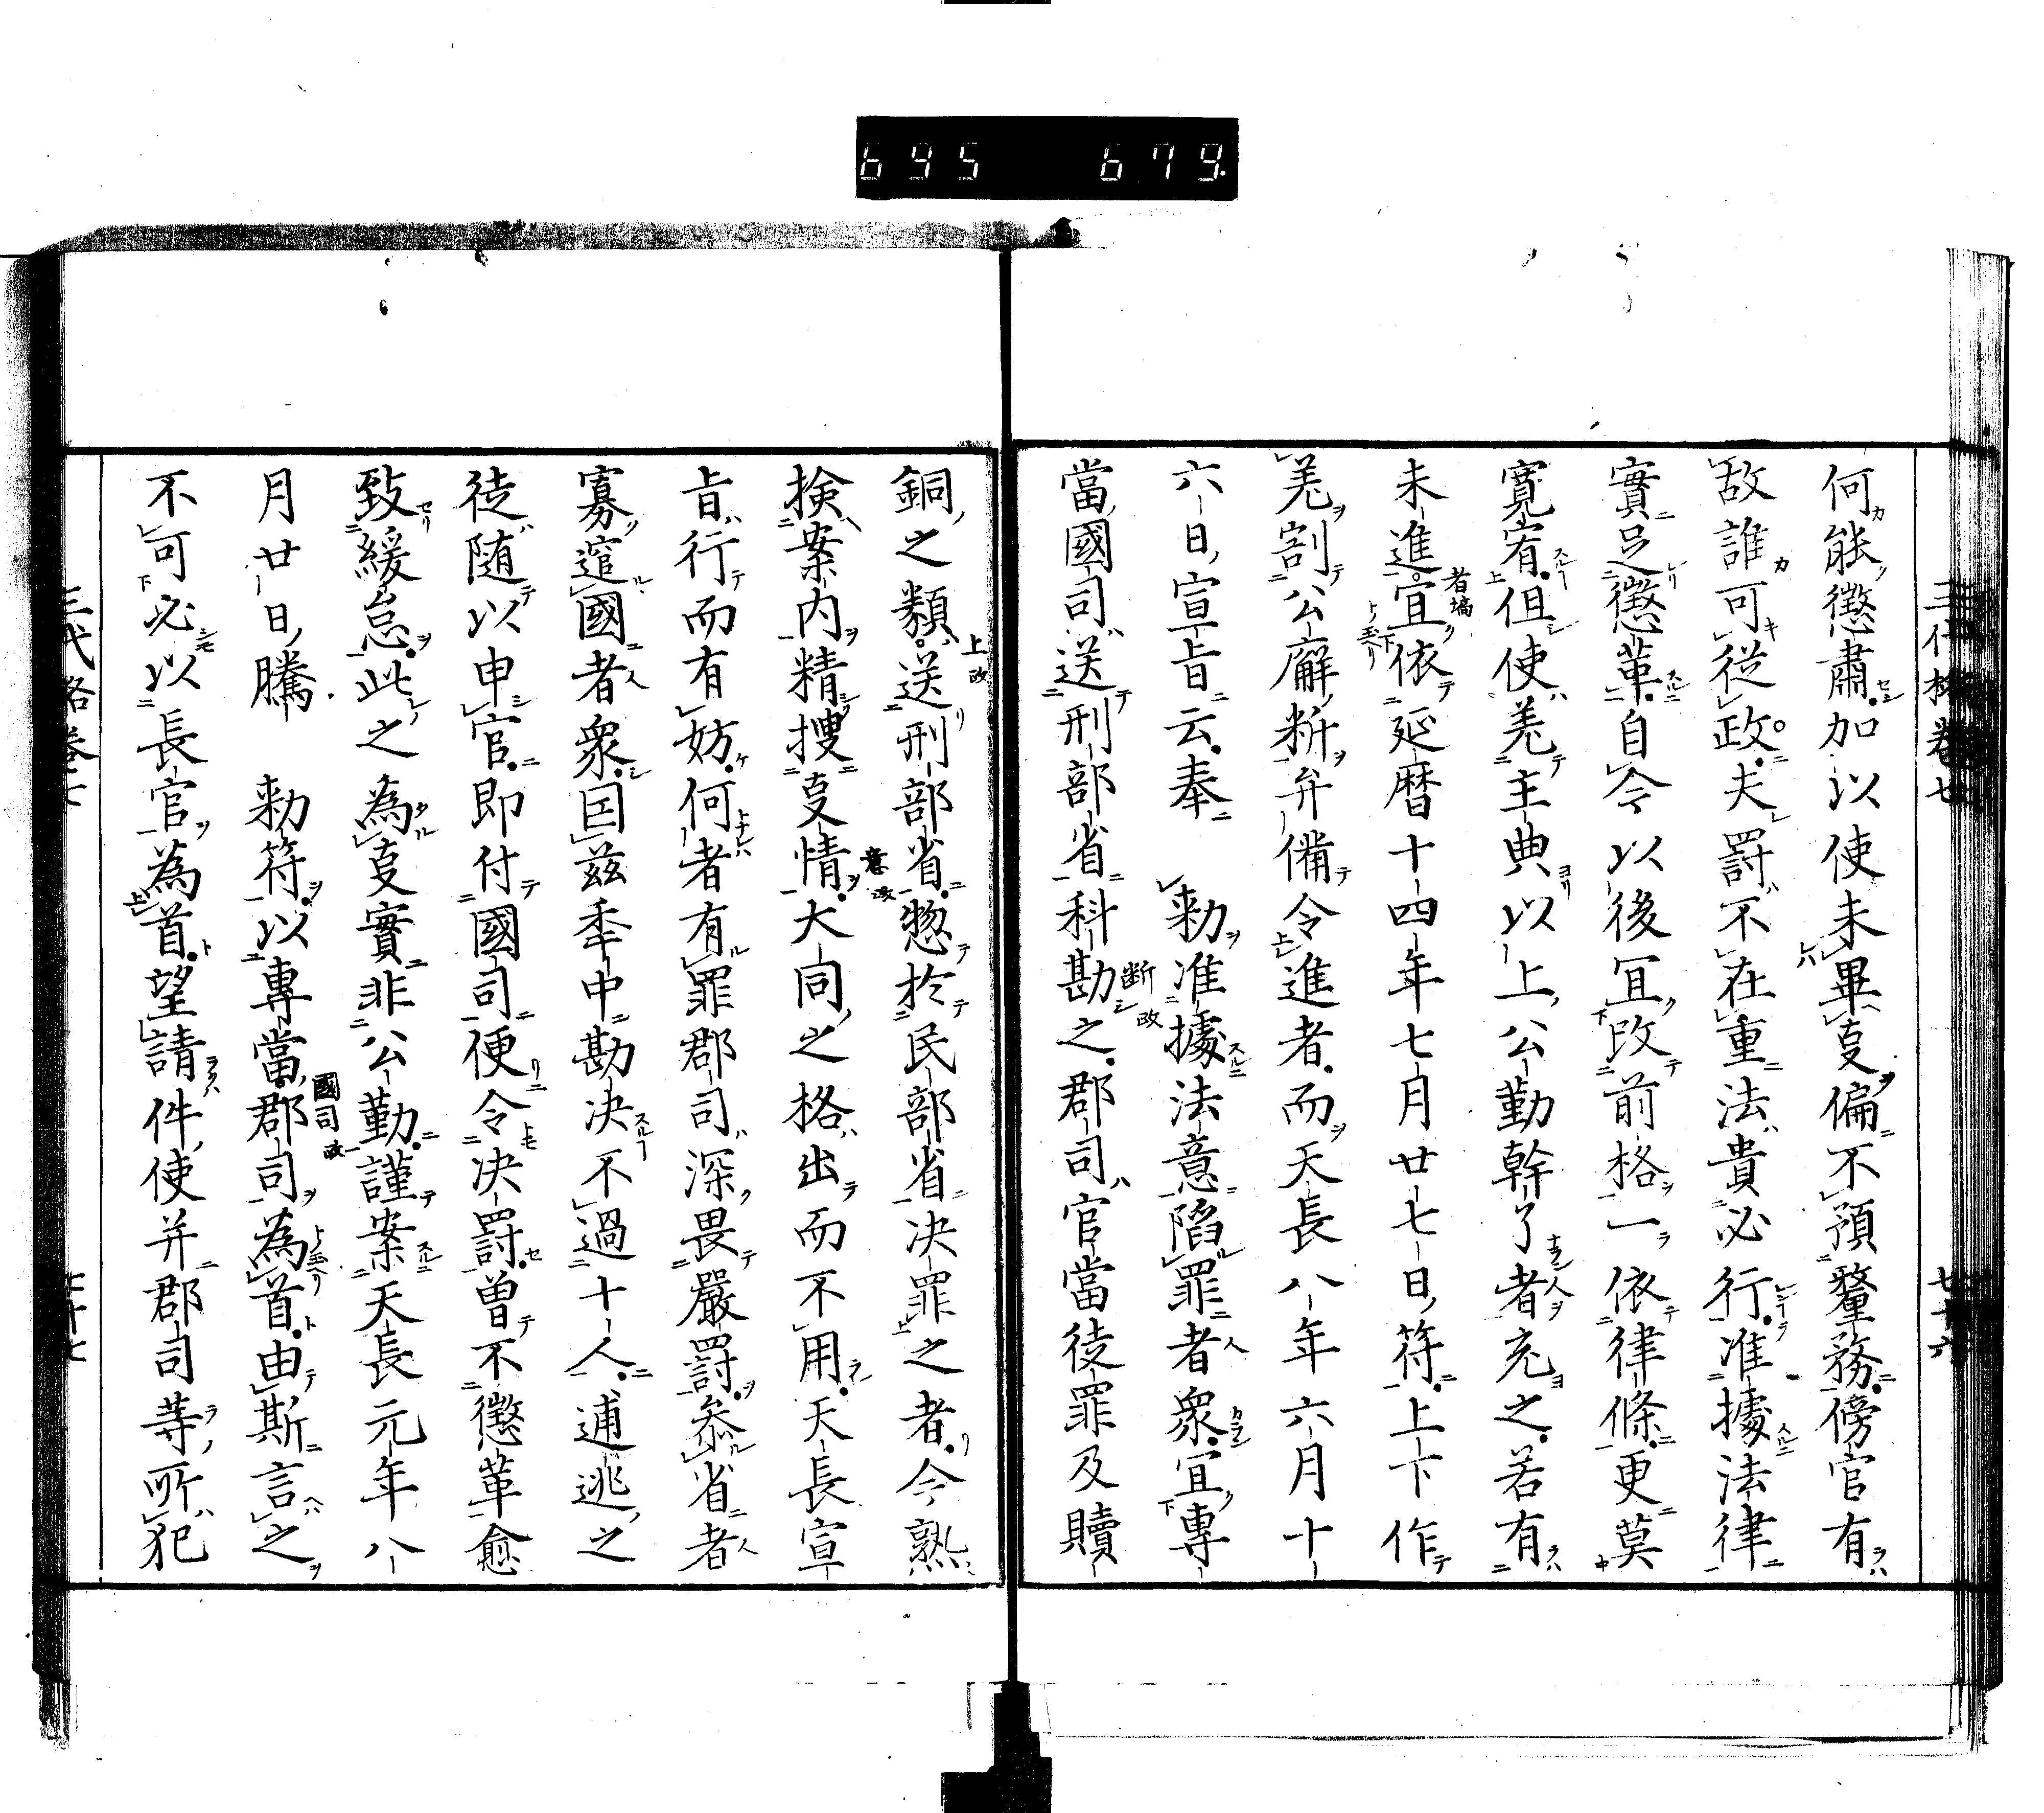 695 679.
三代格卷七 七十六
何能懲肅加以使未畢㕝偏不預釐務傍官有
故誰可從政夫罸不在重法貴必行准據法律
實足懲革自今以後冝改前格一依律條更莫
寛宥但使差主典以上公勤幹了者充之若有
未進冝依延暦十四年七月廿七日符上下作
差割公廨新弁備令進者而天長八年六月十
六日宣旨云奉 勅准據法意䧟罪者衆冝專
當國司送刑部省科勘之郡司官當徒罪及贖
銅之類送刑部省惣於民部省决罪之者今熟
撿案内精搜㕝情大同之格出而不用天長宣
旨行而有妨何者有罪郡司深畏嚴罸叅省者
寡遁國者衆因兹秊中勘决不過十人逋逃之
徒随以申官即付國司便令决罸曽不懲革愈
致緩怠此之為㕝實非公勤謹案天長元年八
月廿日騰 勅符以專當郡司為首由斯言之
不可必以長官為首望請件使并郡司等所犯
三代格卷七 七十七